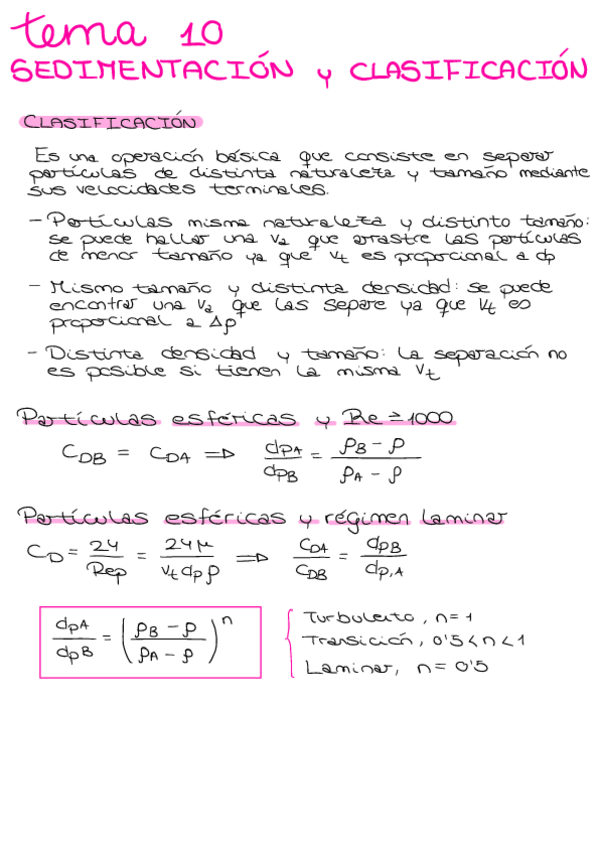 tema 10
SEDIMENTACIÓN y CLASIFICACIÓN
CLASIFICACIÓN
Es una operación básica que consiste en separar
partículas de distinta naturaleza y tamaño mediante
sus velocidades terminales.
- Partículas misma naturaleza y distinto tamaño:
se puede hallar una va que arrastre las partículas
de menor tamaño ya que vt es proporcional a dp
- Mismo tamaño y distinta densidad: se puede
encontrar una va que las separe ya que vt es
proporcional a Δρ
- Distinta densidad y tamaño: la separación no
es posible si tienen la misma vt
Partículas esféricas y Re ≥ 1000
CDB = CDA ⇒ dpA/dpB = (ρB - ρ)/(ρA - ρ)
Partículas esféricas y régimen laminar
CD = 24/Rep = 24μ/(vt dp ρ) ⇒ CDA/CDB = dpB/dp,A
dpA/dpB = ((ρB - ρ)/(ρA - ρ))^n
Turbulento, n = 1
Transición, 0'5 < n < 1
Laminar, n = 0'5